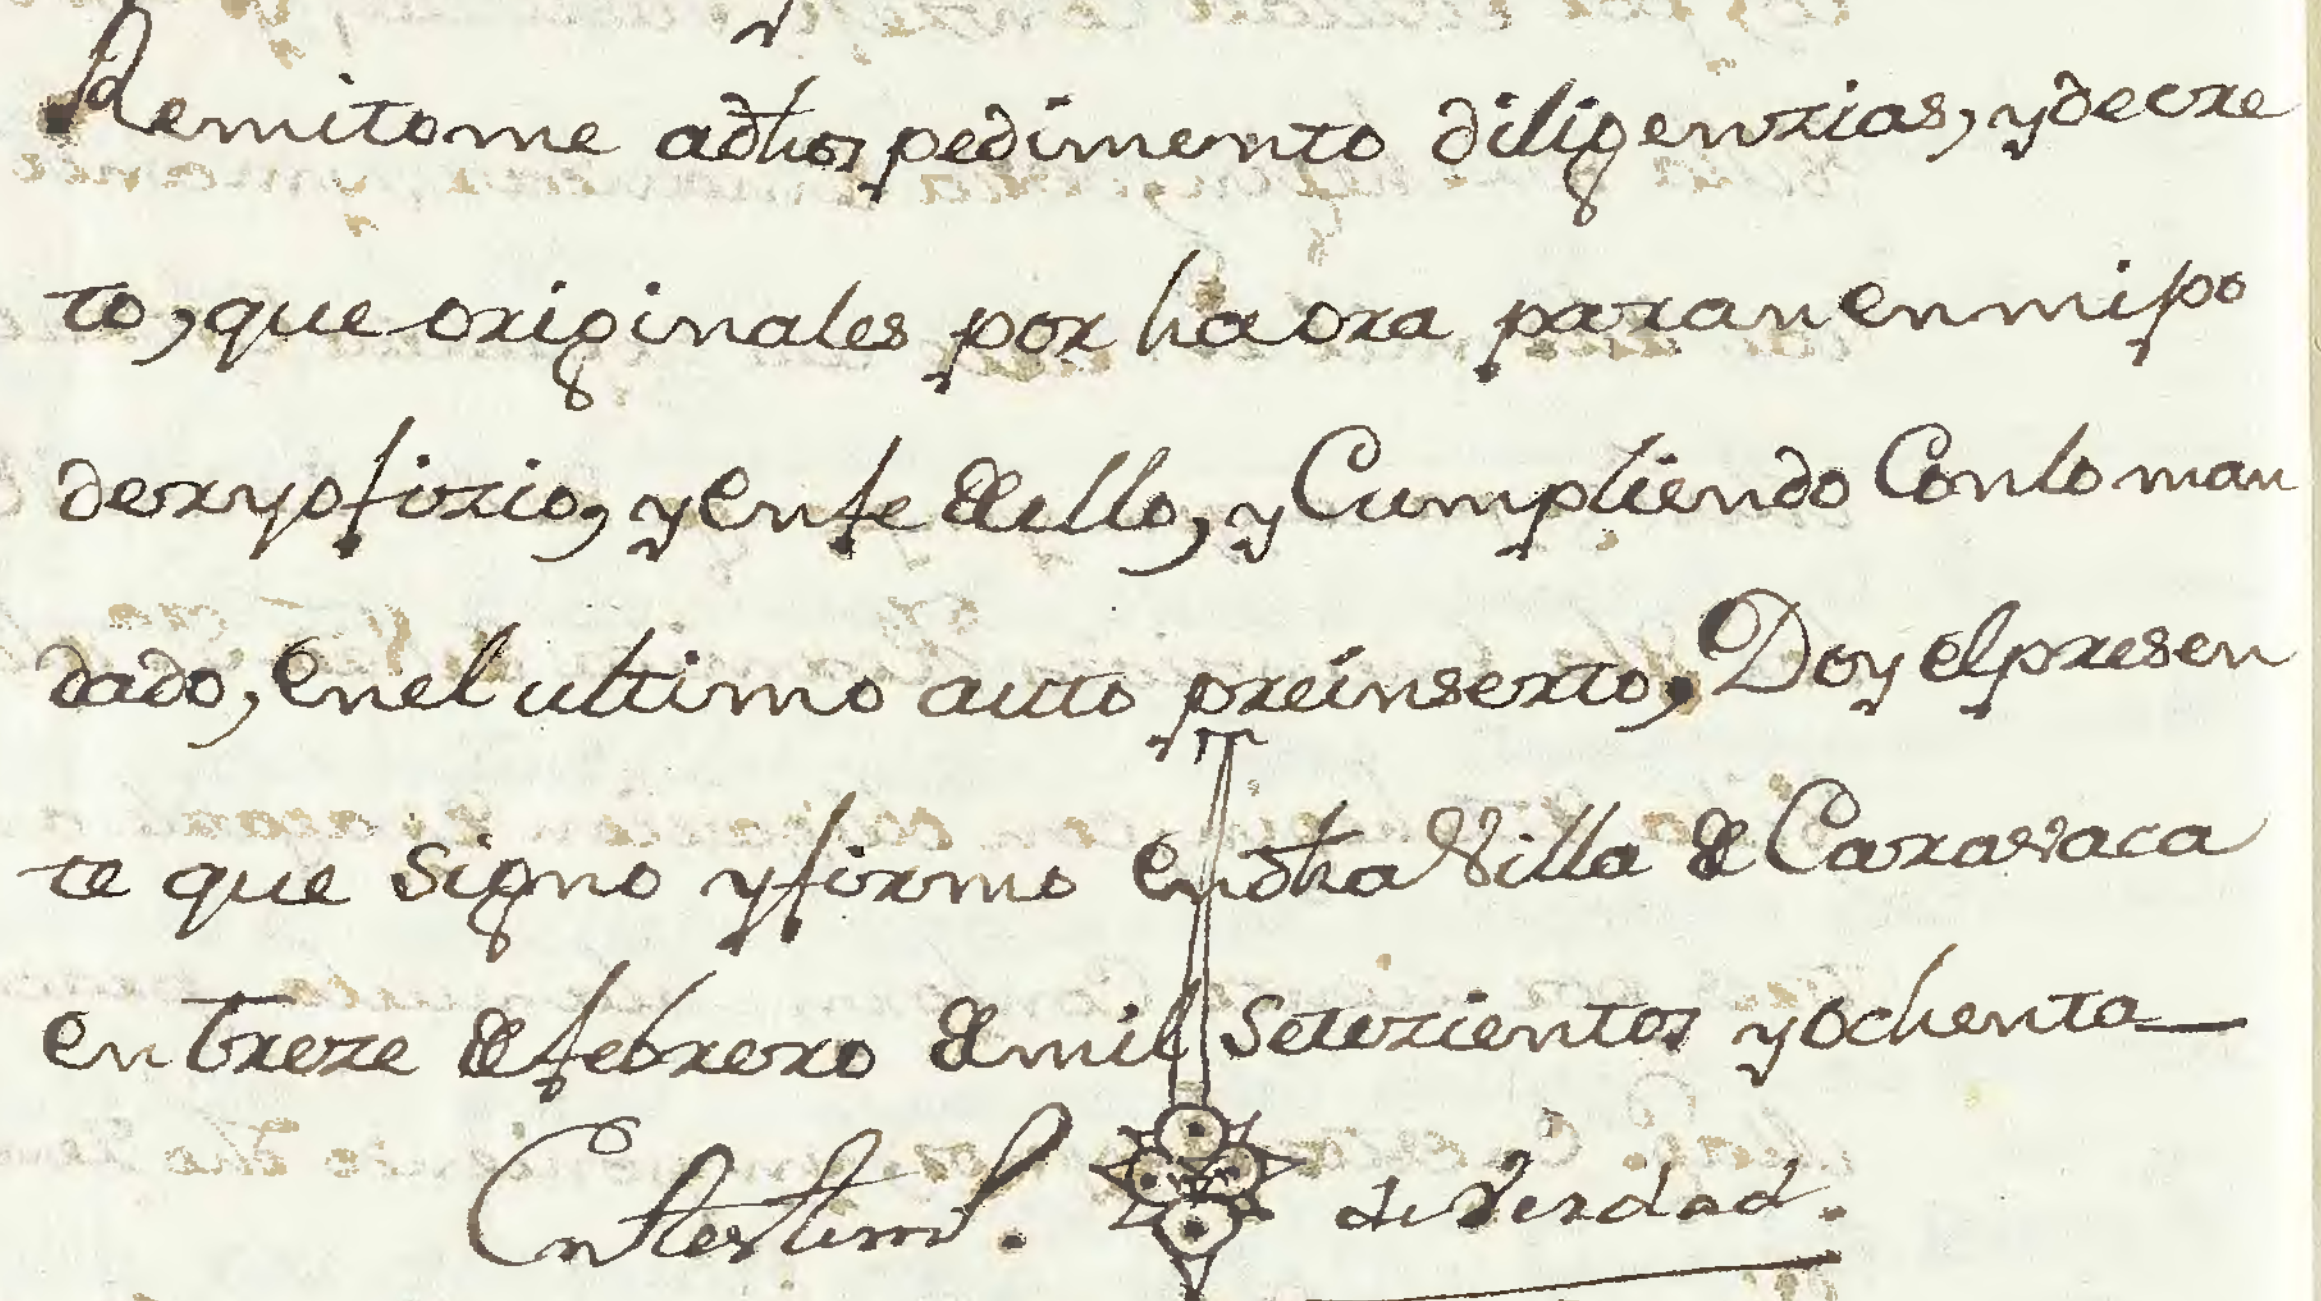 Remitome adhos pedimento diligenzias, y decre
to, que originales por haora paran en mi po
der y ofizio, y en fe de ello, y Cumpliendo Con lo man
dado, en el ultimo auto preinserto, Doy el presen
te que Signo y firmo en dha Villa de Caravaca
en treze de febrero de mil Setezientos y ochenta
En testimo. de Verdad.